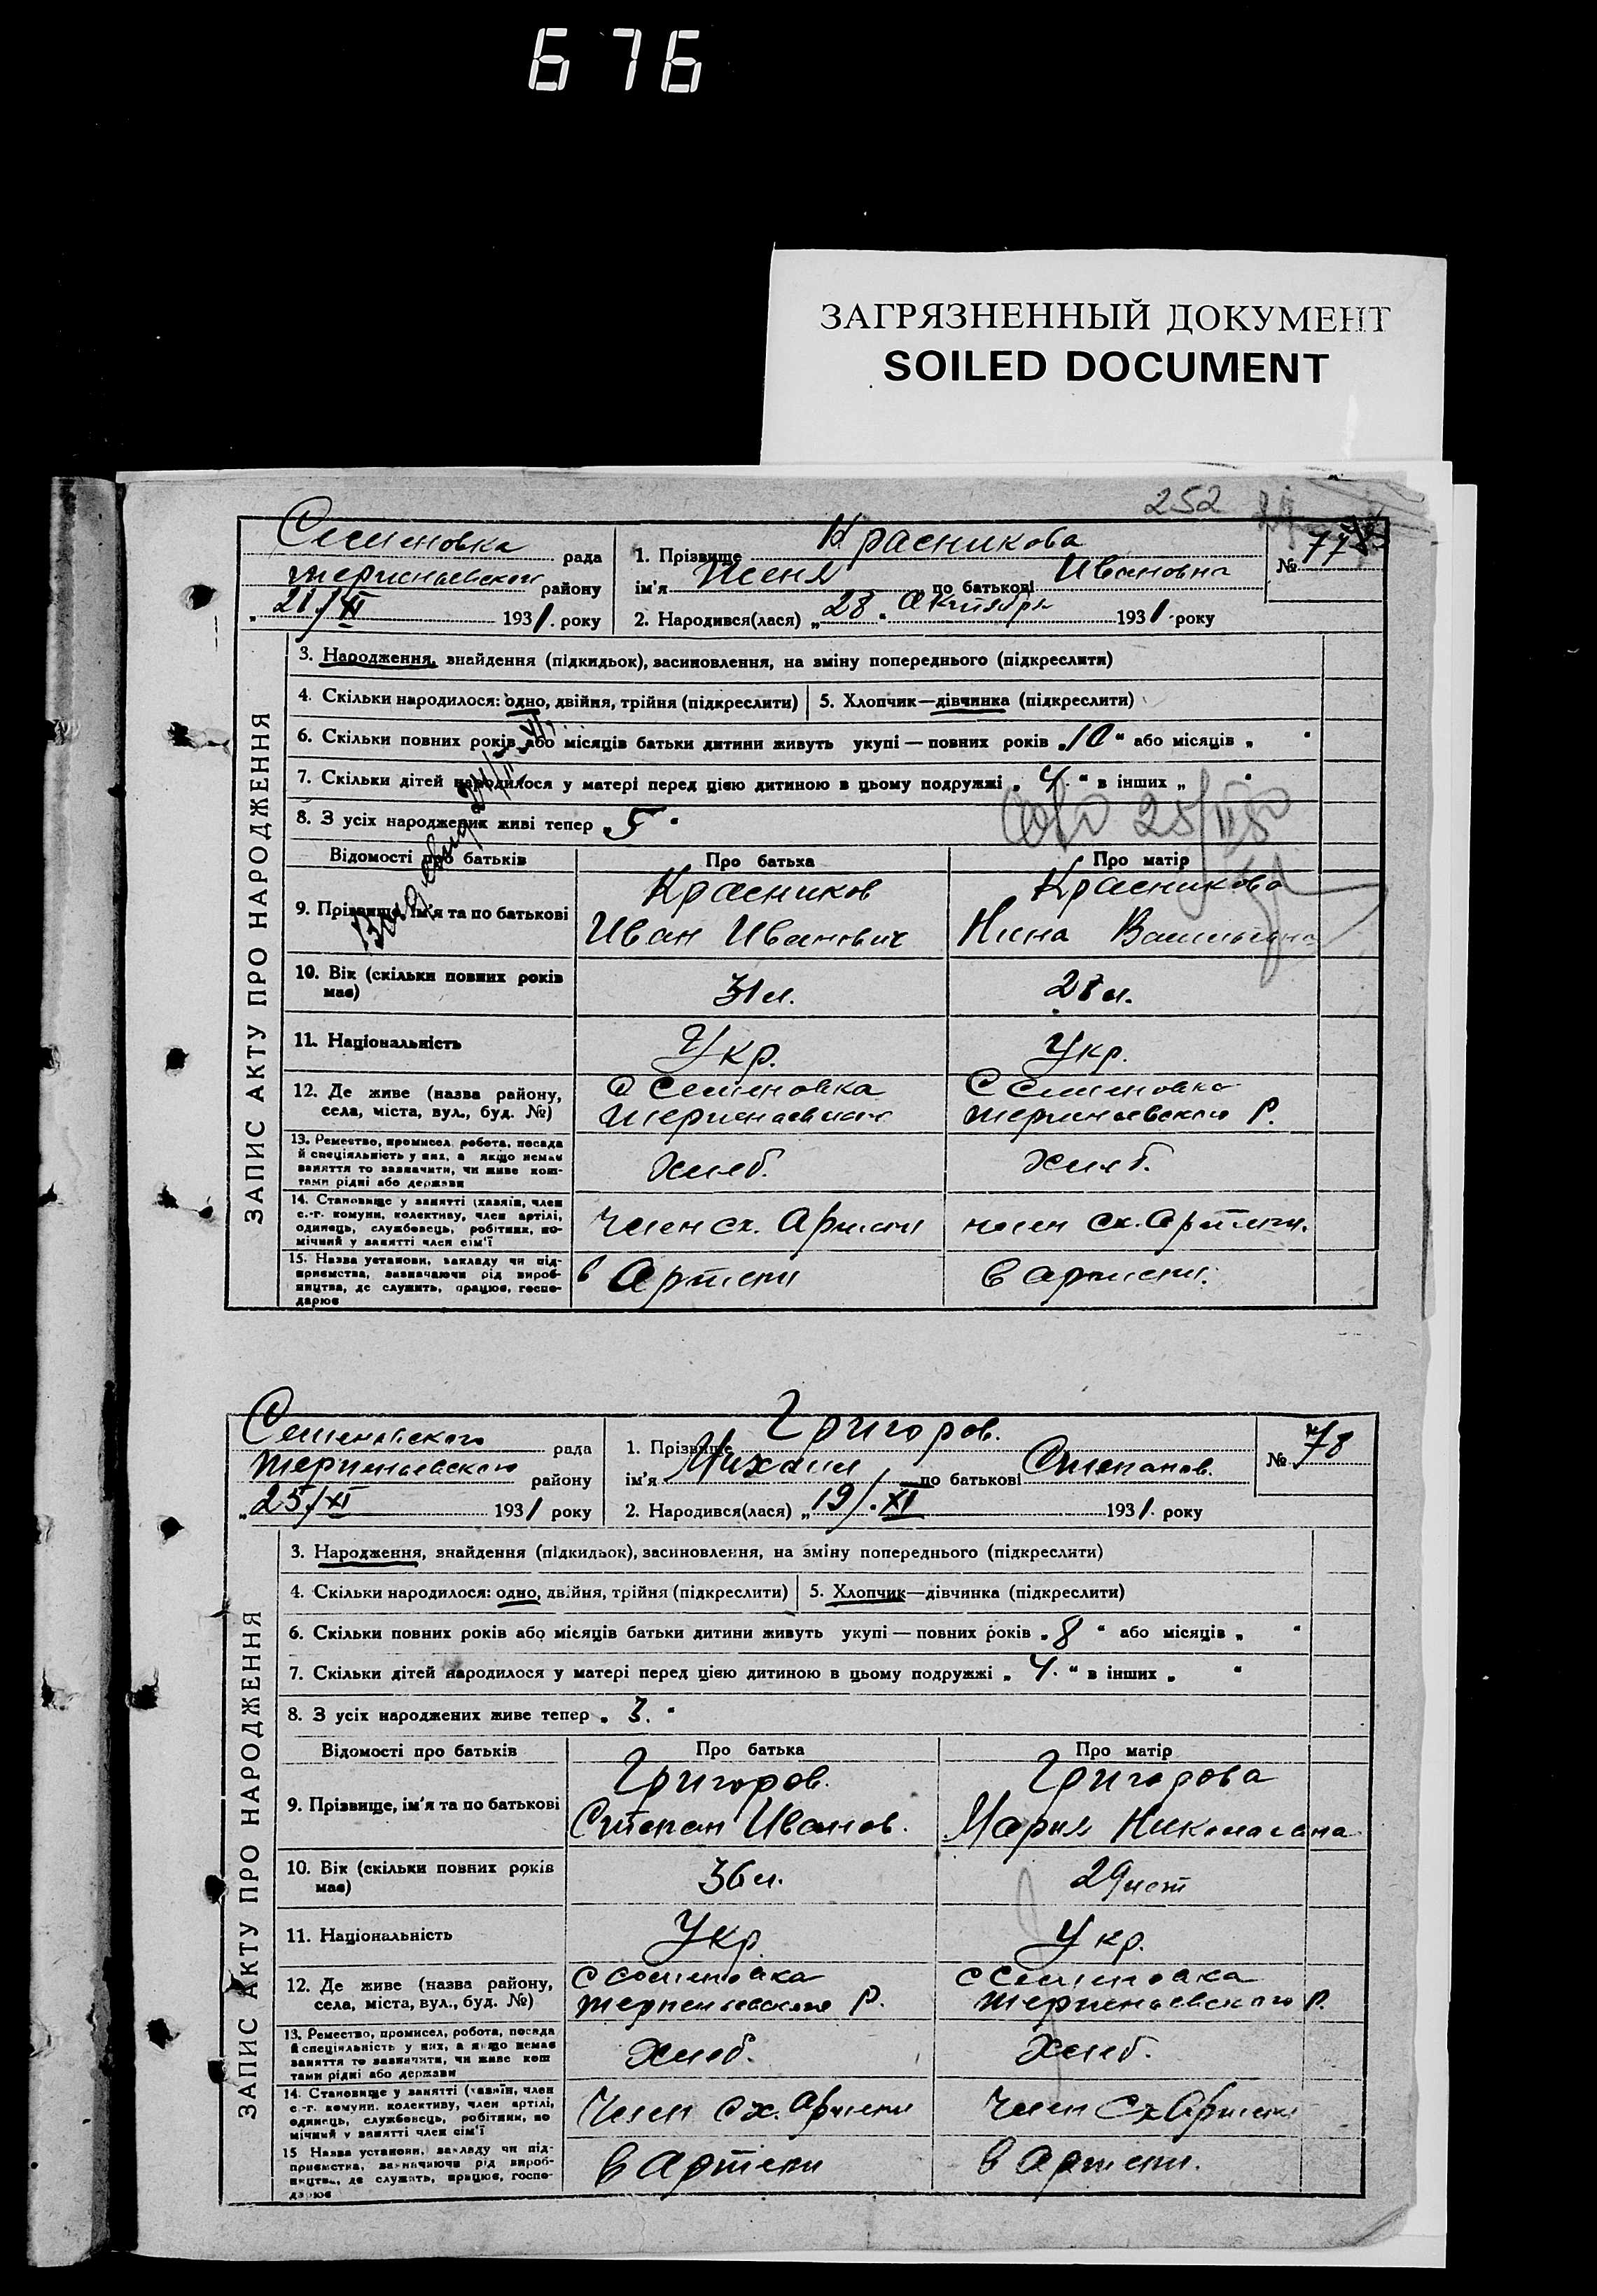 676
ЗАГРЯЗНЕННЫЙ ДОКУМЕНТ
SOILED DOCUMENT
252
ЗАПИС АКТУ ПРО НАРОДЖЕННЯ
Семеновка рада
района району
„21/XI 1931. року
1. Прізвище Красникова
ім'я Женя по батькові Ивановна
2. Народився(лася) „28" Октября 1931. року
№ 77
3. Народження, знайдення (підкидьок), засиновлення, на зміну попереднього (підкреслити)
4. Скільки народилося: одно, двійня, трійня (підкреслити)
5. Хлопчик—дівчинка (підкреслити)
6. Скільки повних років або місяців батьки дитини живуть укупі — повних років „10" або місяців „ "
7. Скільки дітей народилося у матері перед цією дитиною в цьому подружжі „4." в інших „ "
8. З усіх народжених живі тепер „5"
Відомості про батьків Про батька Про матір
9. Прізвище, ім'я та по батькові
Красников
Иван Иванович
Красникова
Нина
10. Вік (скільки повних років має) 31 л. 28 л.
11. Національність Укр. Укр.
12. Де живе (назва району, села, міста, вул., буд. №)
с Семеновка
с Семеновка
р.
13. Ремество, промисел, робота, посада
й спеціяльність у них, а якщо немає
заняття то зазначити, чи живе кош-
тами рідні або держави
Хлеб. Хлеб.
14. Становище у занятті (хазяїн, член
с.-г. комуни, колективу, член артілі,
одинець, службовець, робітник, по-
мічний у занятті член сім'ї
член сх. Артели член сх. Артели.
15. Назва установи, закладу чи під-
приємства, зазначаючи рід вироб-
ництва, де служить, працює, госпо-
дарює
в Артели в артели.
ЗАПИС АКТУ ПРО НАРОДЖЕННЯ
Семеновского рада
району
„25/XI 1931 року
1. Прізвище Григоров.
ім'я Михаил по батькові Степанов.
2. Народився(лася) „19/XI 1931. року
№ 78
3. Народження, знайдення (підкидьок), засиновлення, на зміну попереднього (підкреслити)
4. Скільки народилося: одно, двійня, трійня (підкреслити)
5. Хлопчик—дівчинка (підкреслити)
6. Скільки повних років або місяців батьки дитини живуть укупі — повних років „8" або місяців „ "
7. Скільки дітей народилося у матері перед цією дитиною в цьому подружжі „4." в інших „ "
8. З усіх народжених живе тепер „3."
Відомості про батьків Про батька Про матір
9. Прізвище, ім'я та по батькові
Григоров.
Степан Иванов.
Григорова
Мария
10. Вік (скільки повних років має) 36 л. 29 лет
11. Національність Укр. Укр.
12. Де живе (назва району, села, міста, вул., буд. №)
с Семеновка
р.
с Семеновка
р.
13. Ремество, промисел, робота, посада
й спеціяльність у них, а якщо немає
заняття то зазначити, чи живе кош
тами рідні або держави
Хлеб. Хлеб.
14. Становище у занятті (хазяїн, член
с.-г. комуни, колективу, член артілі,
одинець, службовець, робітник, по
мічний у занятті член сім'ї
Член сх. Артели Член сх Артели
15 Назва установи, закладу чи під-
приємства, зазначаючи рід вироб-
ництва, де служить, працює, госпо-
дарює
в Артели в Артели.